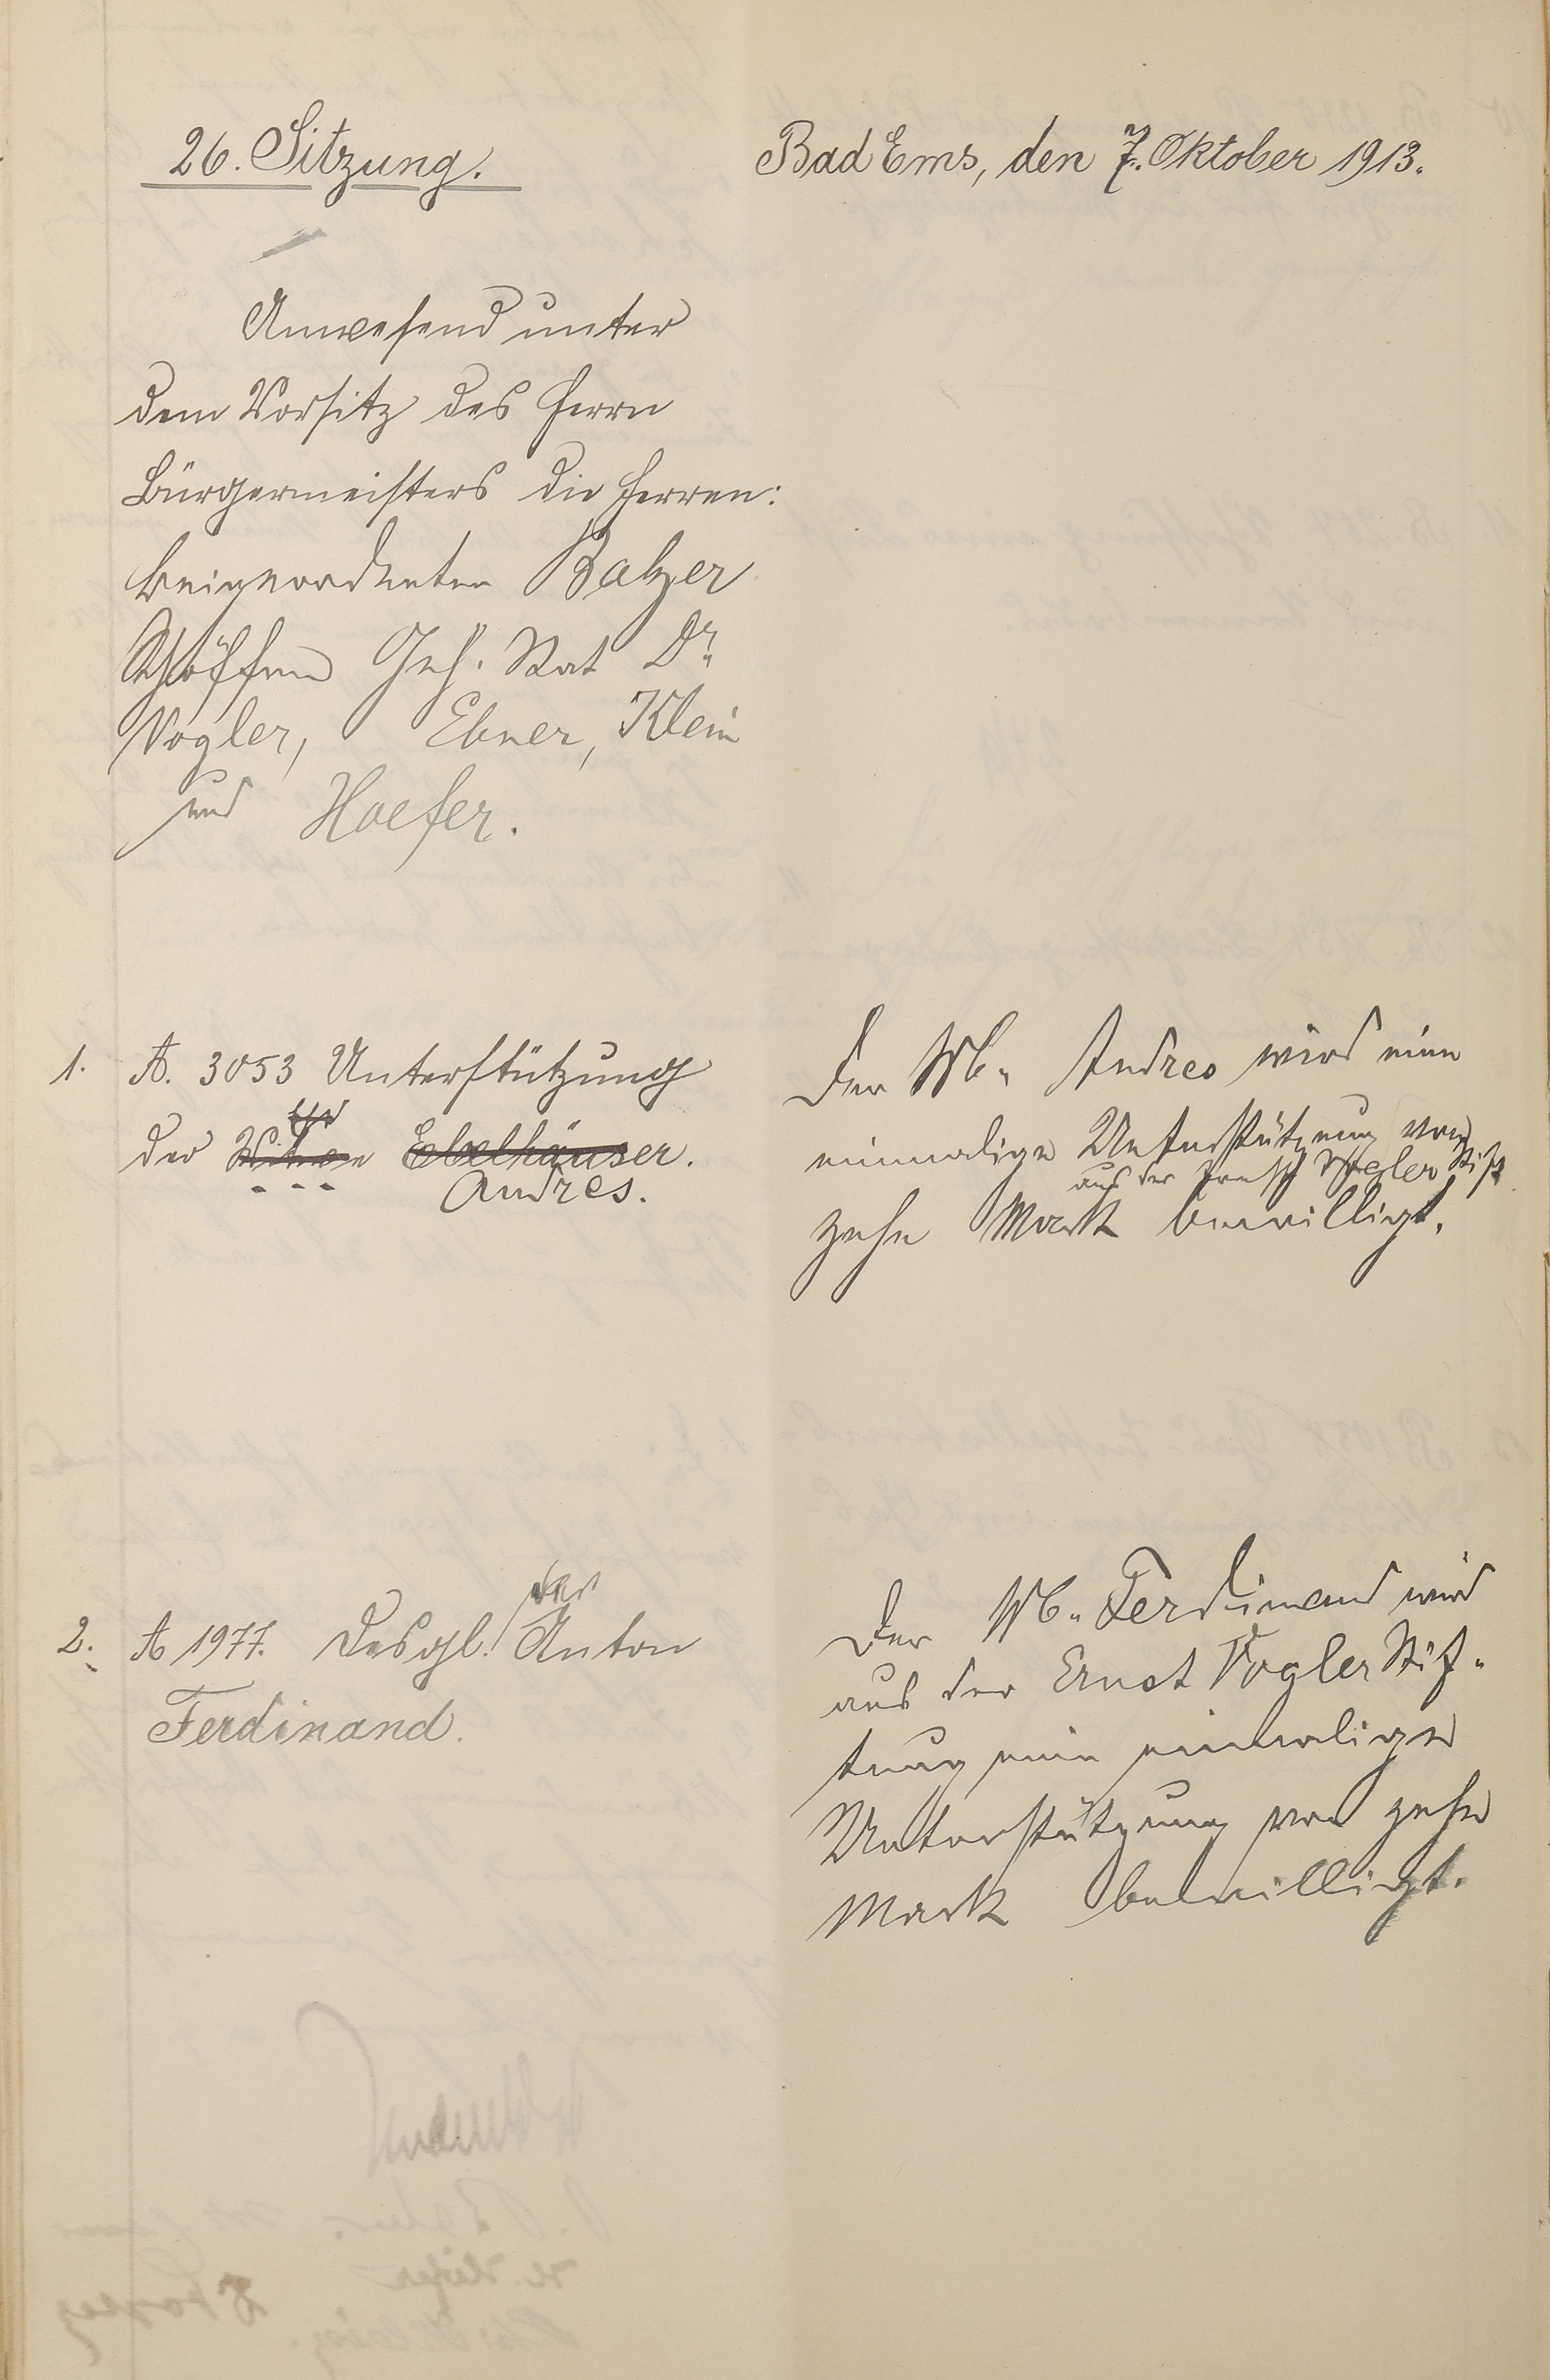 26. Sitzung.
Bad Ems, den 7. Oktober 1913.
Anwesend unter
dem Vorsitz des Herrn
Bürgermeisters die Herren:
Beigeordneten Balzer
Schöffen Geh. Rat Dr.
Vogler, Ebner, Klein
und Hoefer.
1. A. 3053 Unterstützung
der Witwe Ebelhäuser.
Andres.
Der Wb. Andres wird eine
einmalige Unterstützung von
aus der Ernst Vogler Stift
zehn Mark bewilligt.
2. A 1977. Desgl. der Anton
Ferdinand.
Der Wb. Ferdinand wird
aus der Ernst Vogler Stif-
tung eine einmalige
Unterstützung von zehn
Mark bewilligt.